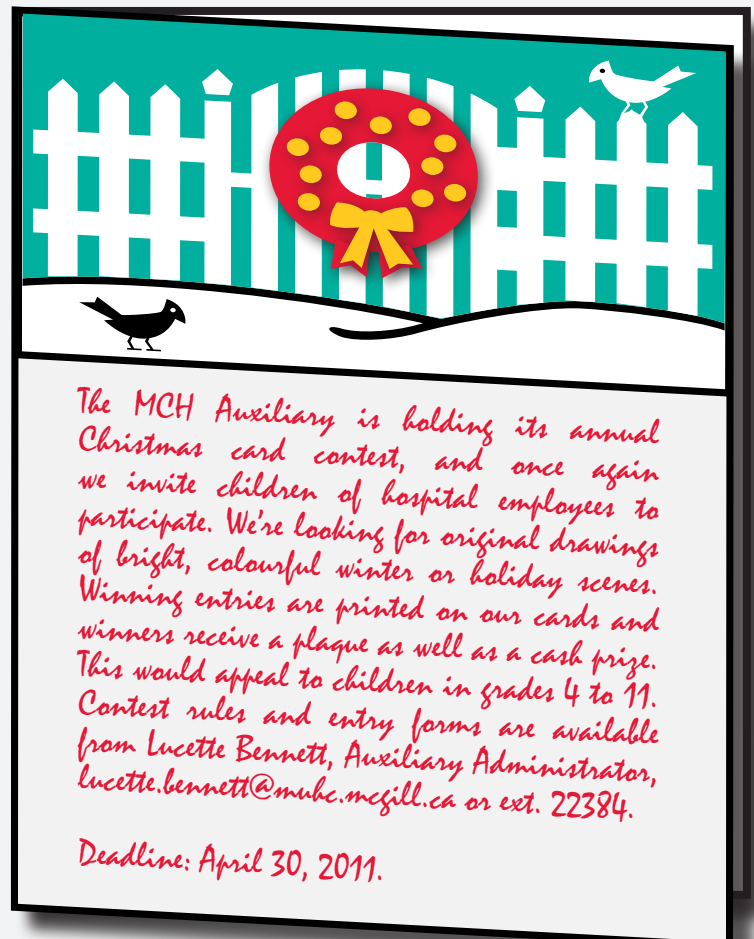 The MCH Auxiliary is holding its annual
Christmas card contest, and once again
we invite children of hospital employees to
participate. We're looking for original drawings
of bright, colourful winter or holiday scenes.
Winning entries are printed on our cards and
winners receive a plaque as well as a cash prize.
This would appeal to children in grades 4 to 11.
Contest rules and entry forms are available
from Lucette Bennett, Auxiliary Administrator,
lucette.bennett@muhc.mcgill.ca or ext. 22384.
Deadline: April 30, 2011.